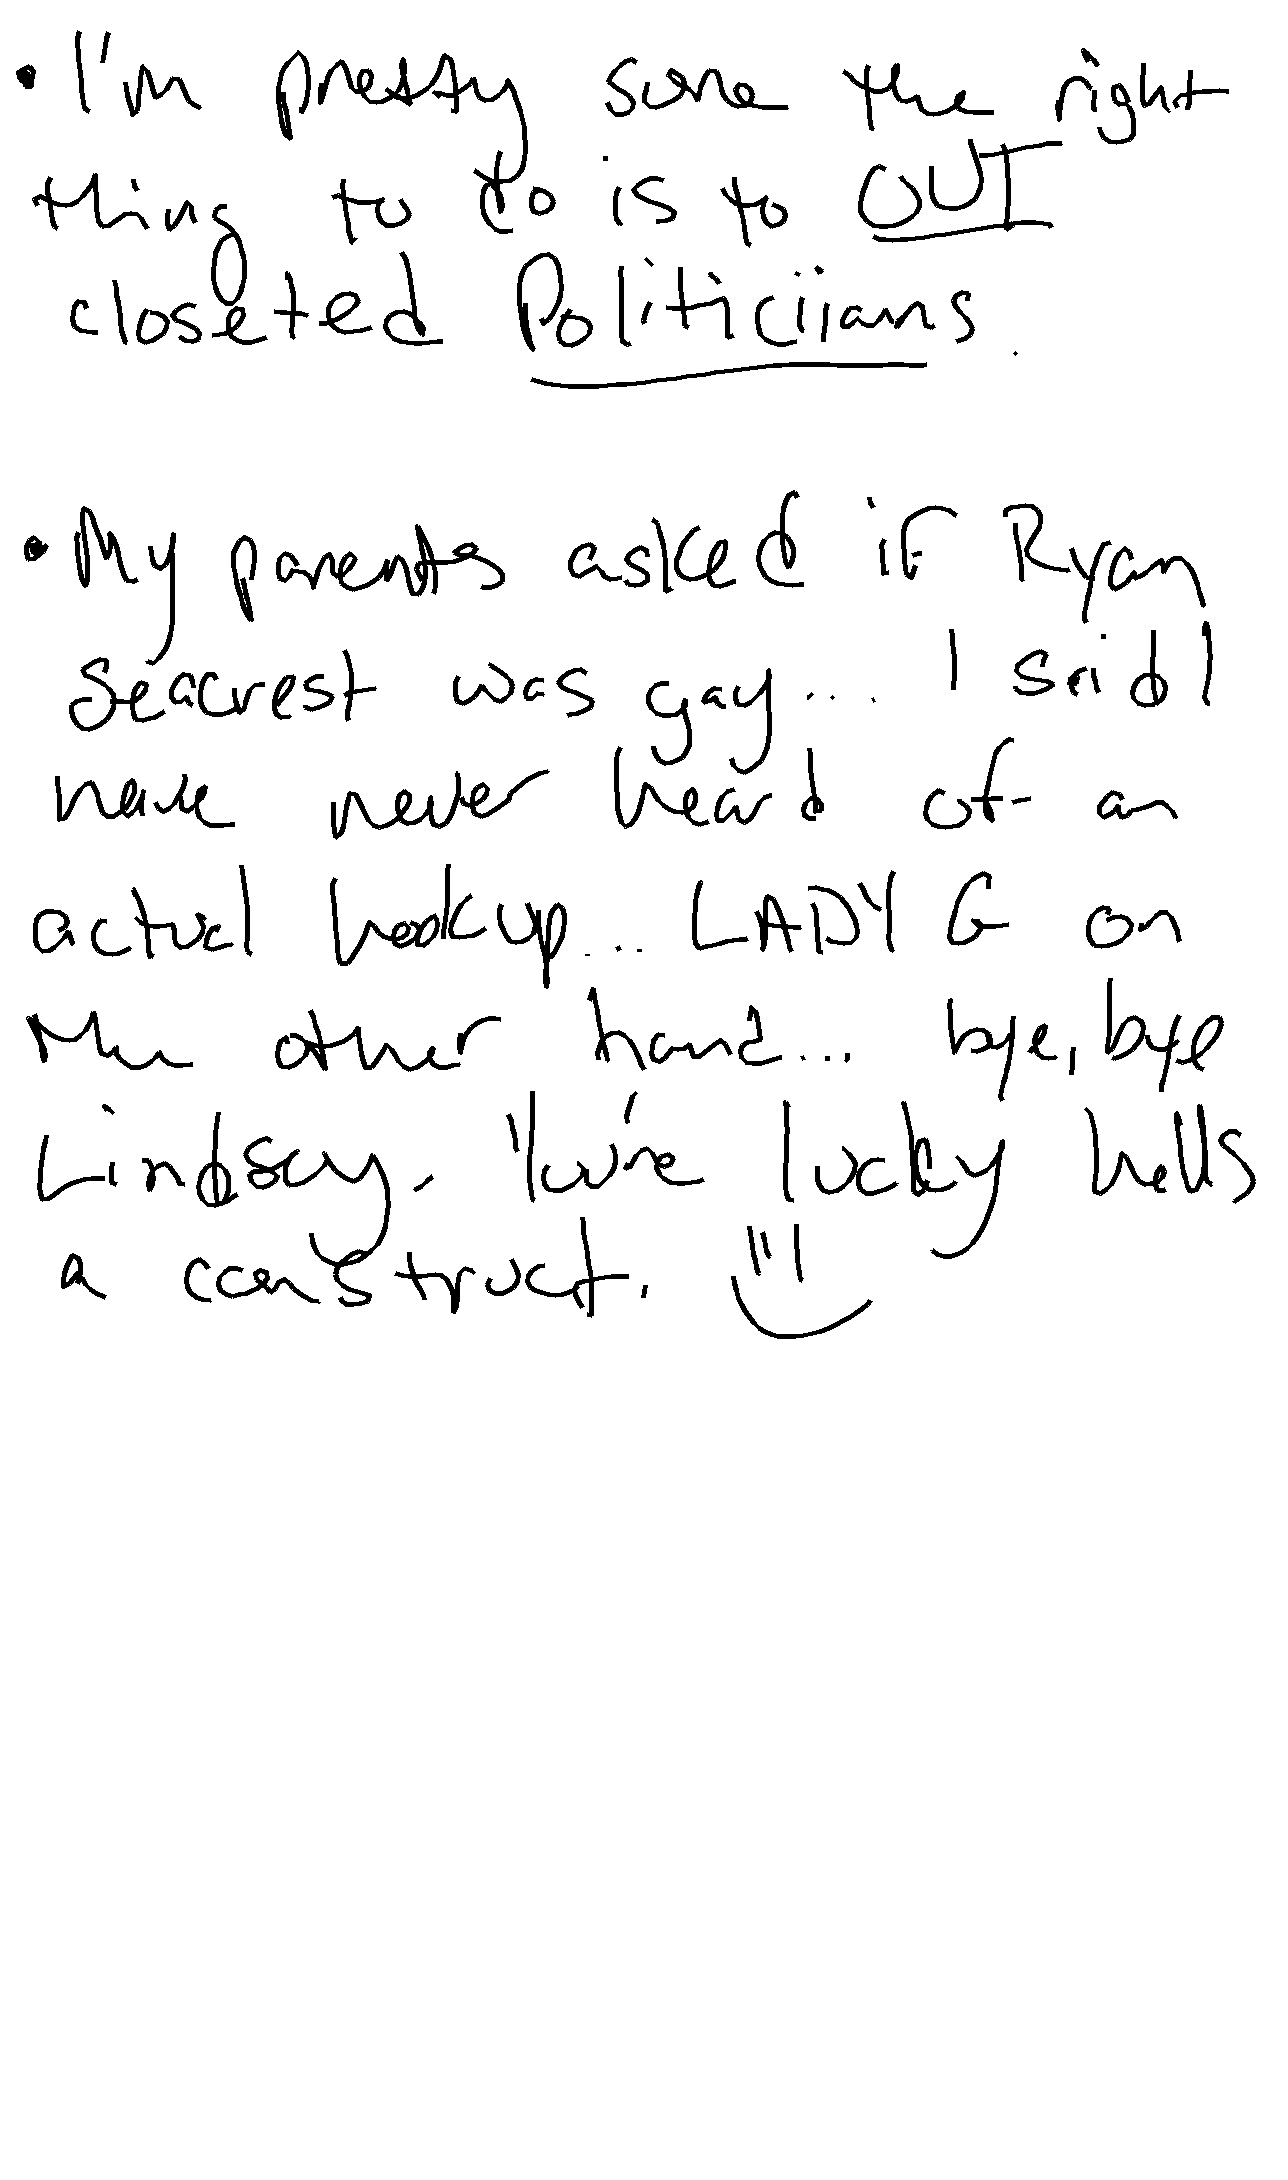 • I'm pretty sure the right
thing to do is to OUT
closeted Politiciians.
• My parents asked if Ryan
Seacrest was gay... I said I
have never heard of an
actual hookup... LADY G on
the other hand... bye, bye
Lindsay. You're lucky hells
a construct. :)